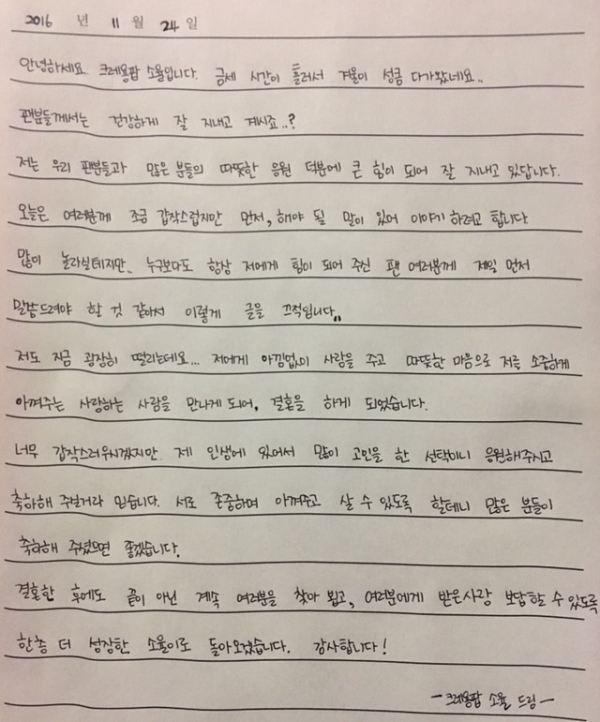 2016 년 11 월 24 일
안녕하세요. 크레용팝 소율입니다. 금세 시간이 흘러서 겨울이 성큼 다가왔네요..
팬분들께서는 건강하게 잘 지내고 계시죠..?
저는 우리 팬분들과 많은 분들의 따뜻한 응원 덕분에 큰 힘이 되어 잘 지내고 있답니다.
오늘은 여러분께 조금 갑작스럽지만 먼저, 해야 될 말이 있어 이야기 하려고 합니다
많이 놀라실테지만, 누구보다도 항상 저에게 힘이 되어 주신 팬 여러분께 제일 먼저
말씀드려야 할 것 같아서 이렇게 글을 끄적입니다..
저도 지금 굉장히 떨리는데요... 저에게 아낌없이 사랑을 주고 따뜻한 마음으로 저를 소중하게
아껴주는 사랑하는 사람을 만나게 되어, 결혼을 하게 되었습니다.
너무 갑작스러우시겠지만 제 인생에 있어서 많이 고민을 한 선택이니 응원해주시고
축하해 주실거라 믿습니다. 서로 존중하며 아껴주고 살 수 있도록 할테니 많은 분들이
축하해 주셨으면 좋겠습니다.
결혼한 후에도 끝이 아닌 계속 여러분을 찾아 뵙고, 여러분에게 받은사랑 보답할 수 있도록
한층 더 성장한 소율이로 돌아오겠습니다. 감사합니다!
- 크레용팝 소율 드림 -